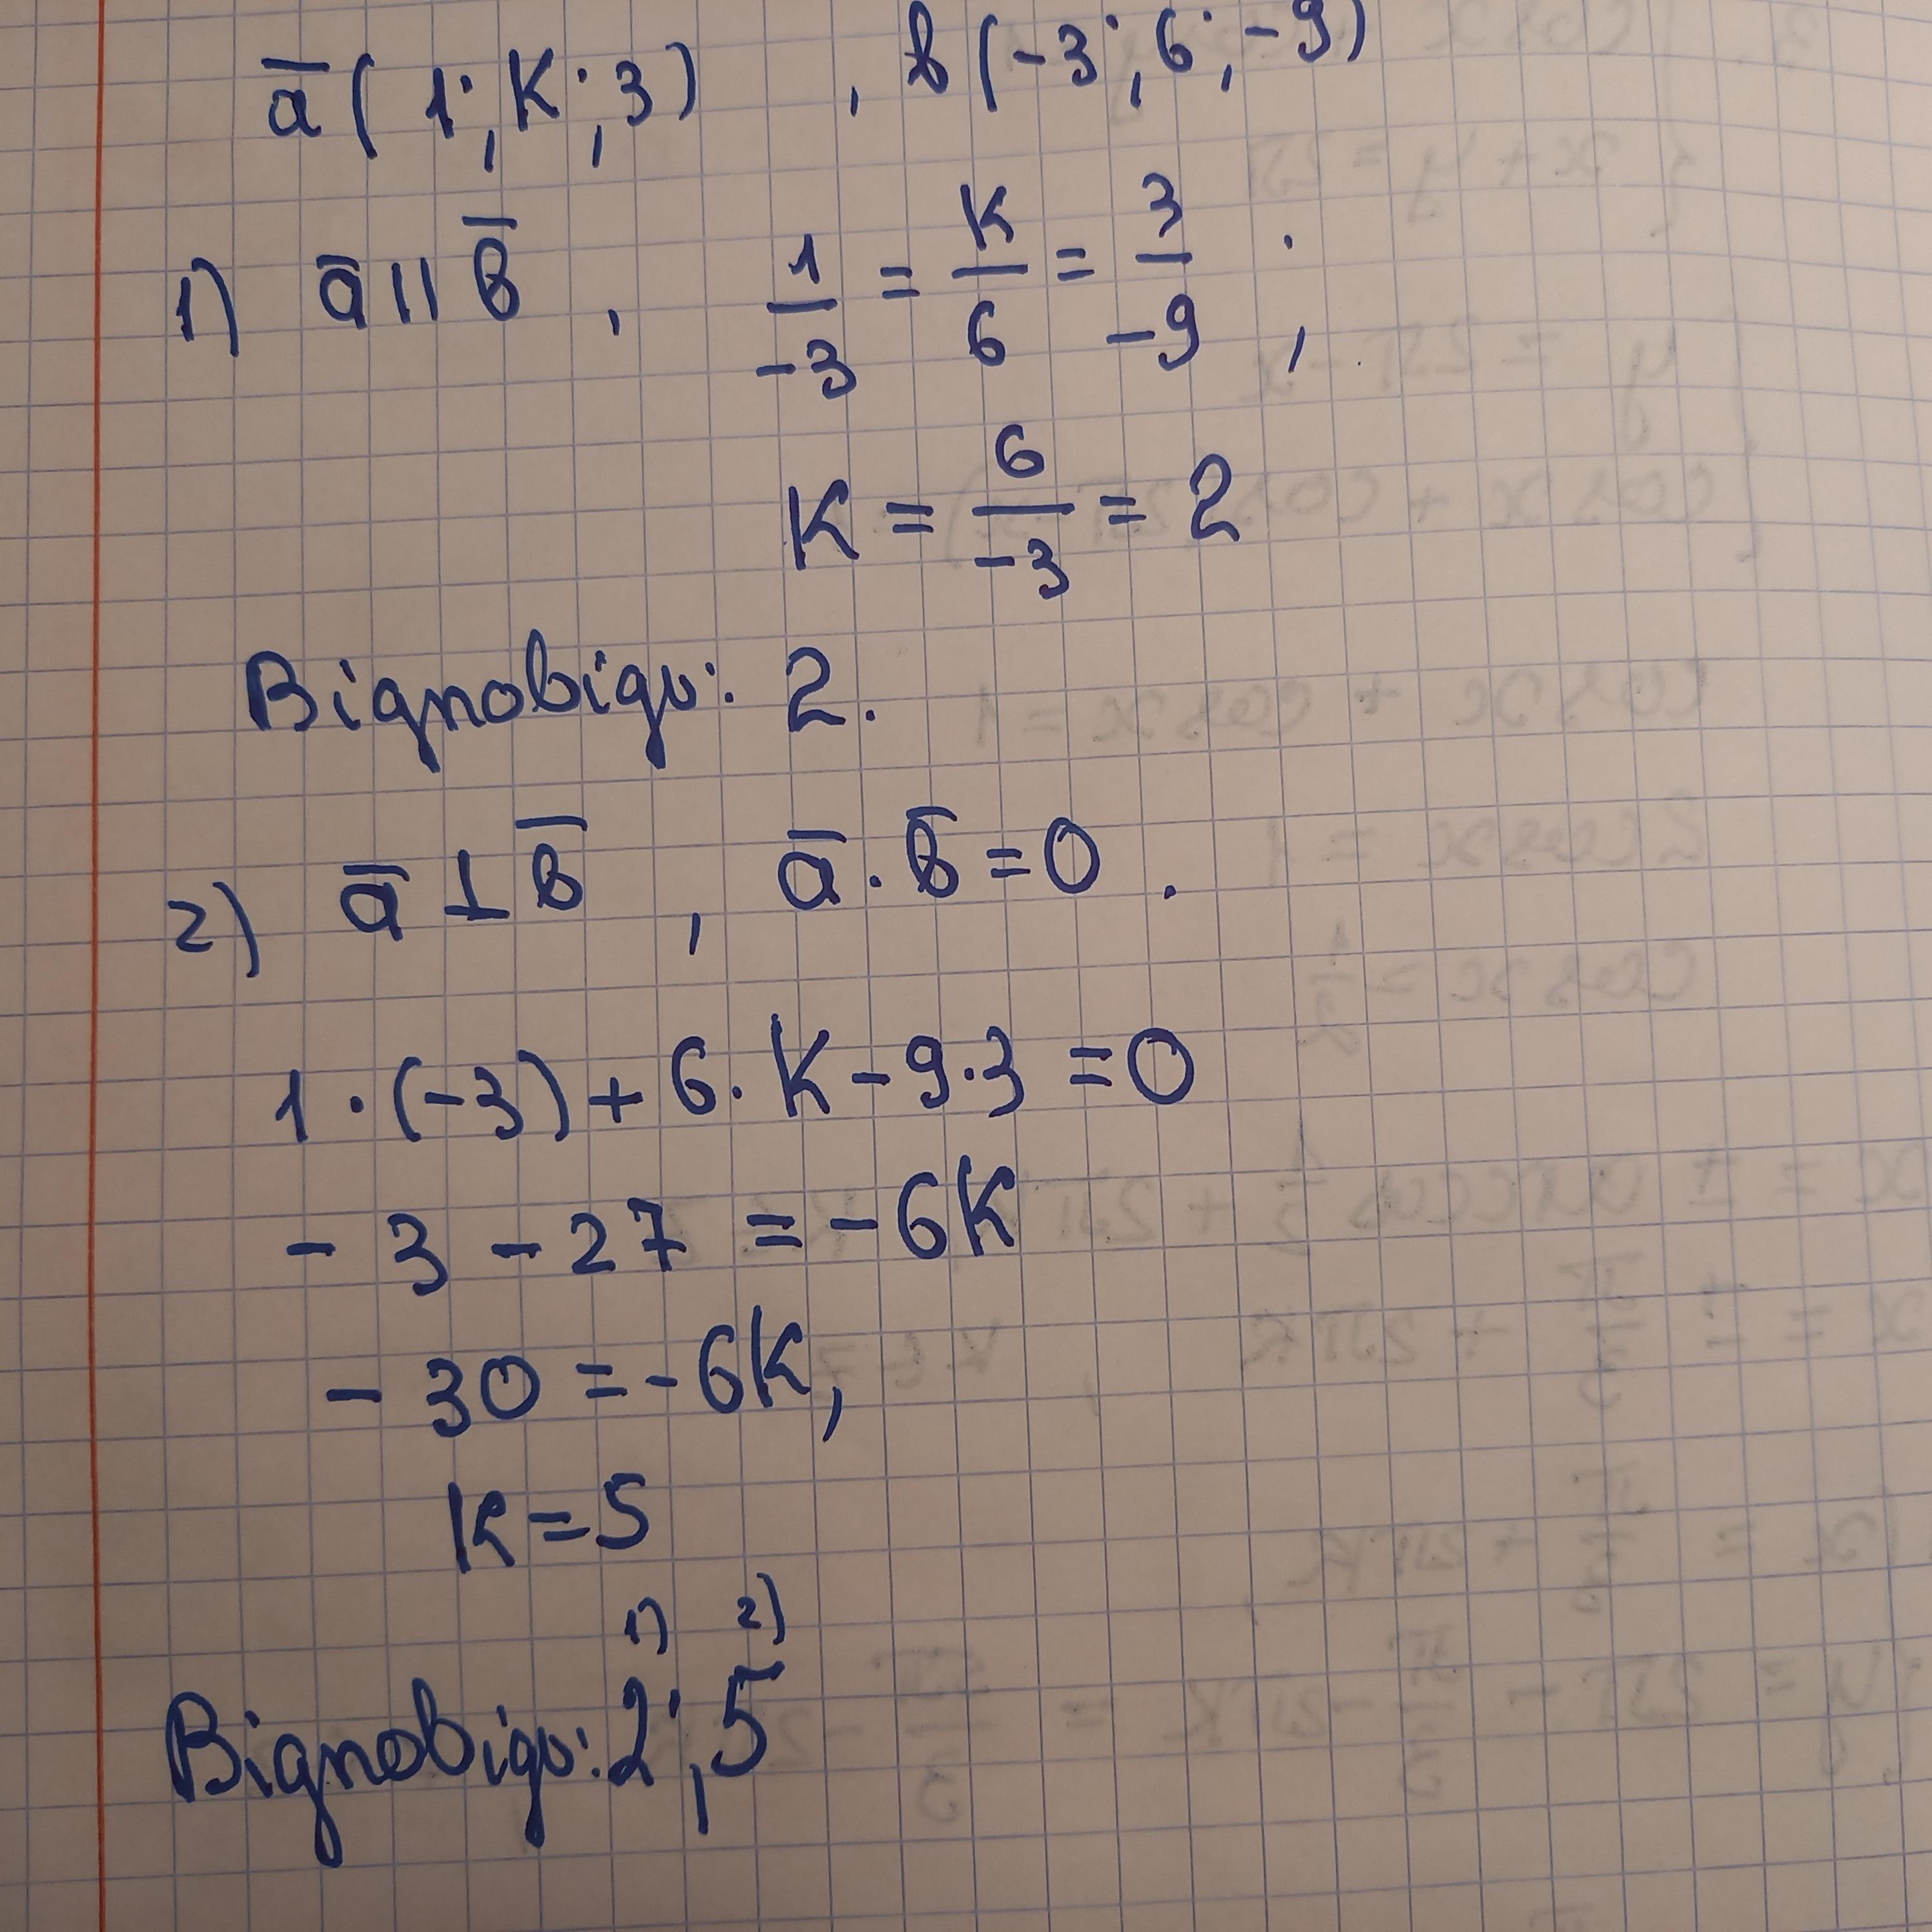 a̅ ( 1 ; K ; 3 ) , b ( -3 ; 6 ; -9 )
1) a̅ || b̅ , 1/-3 = K/6 = 3/-9 ;
K = 6/-3 = 2
Відповідь: 2.
2) a̅ ⊥ b̅ , a̅ · b̅ = 0 .
1 · (-3) + 6 · K - 9 · 3 = 0
- 3 - 27 = - 6K
- 30 = - 6K,
K = 5
1) 2)
Відповідь: 2 ; 5